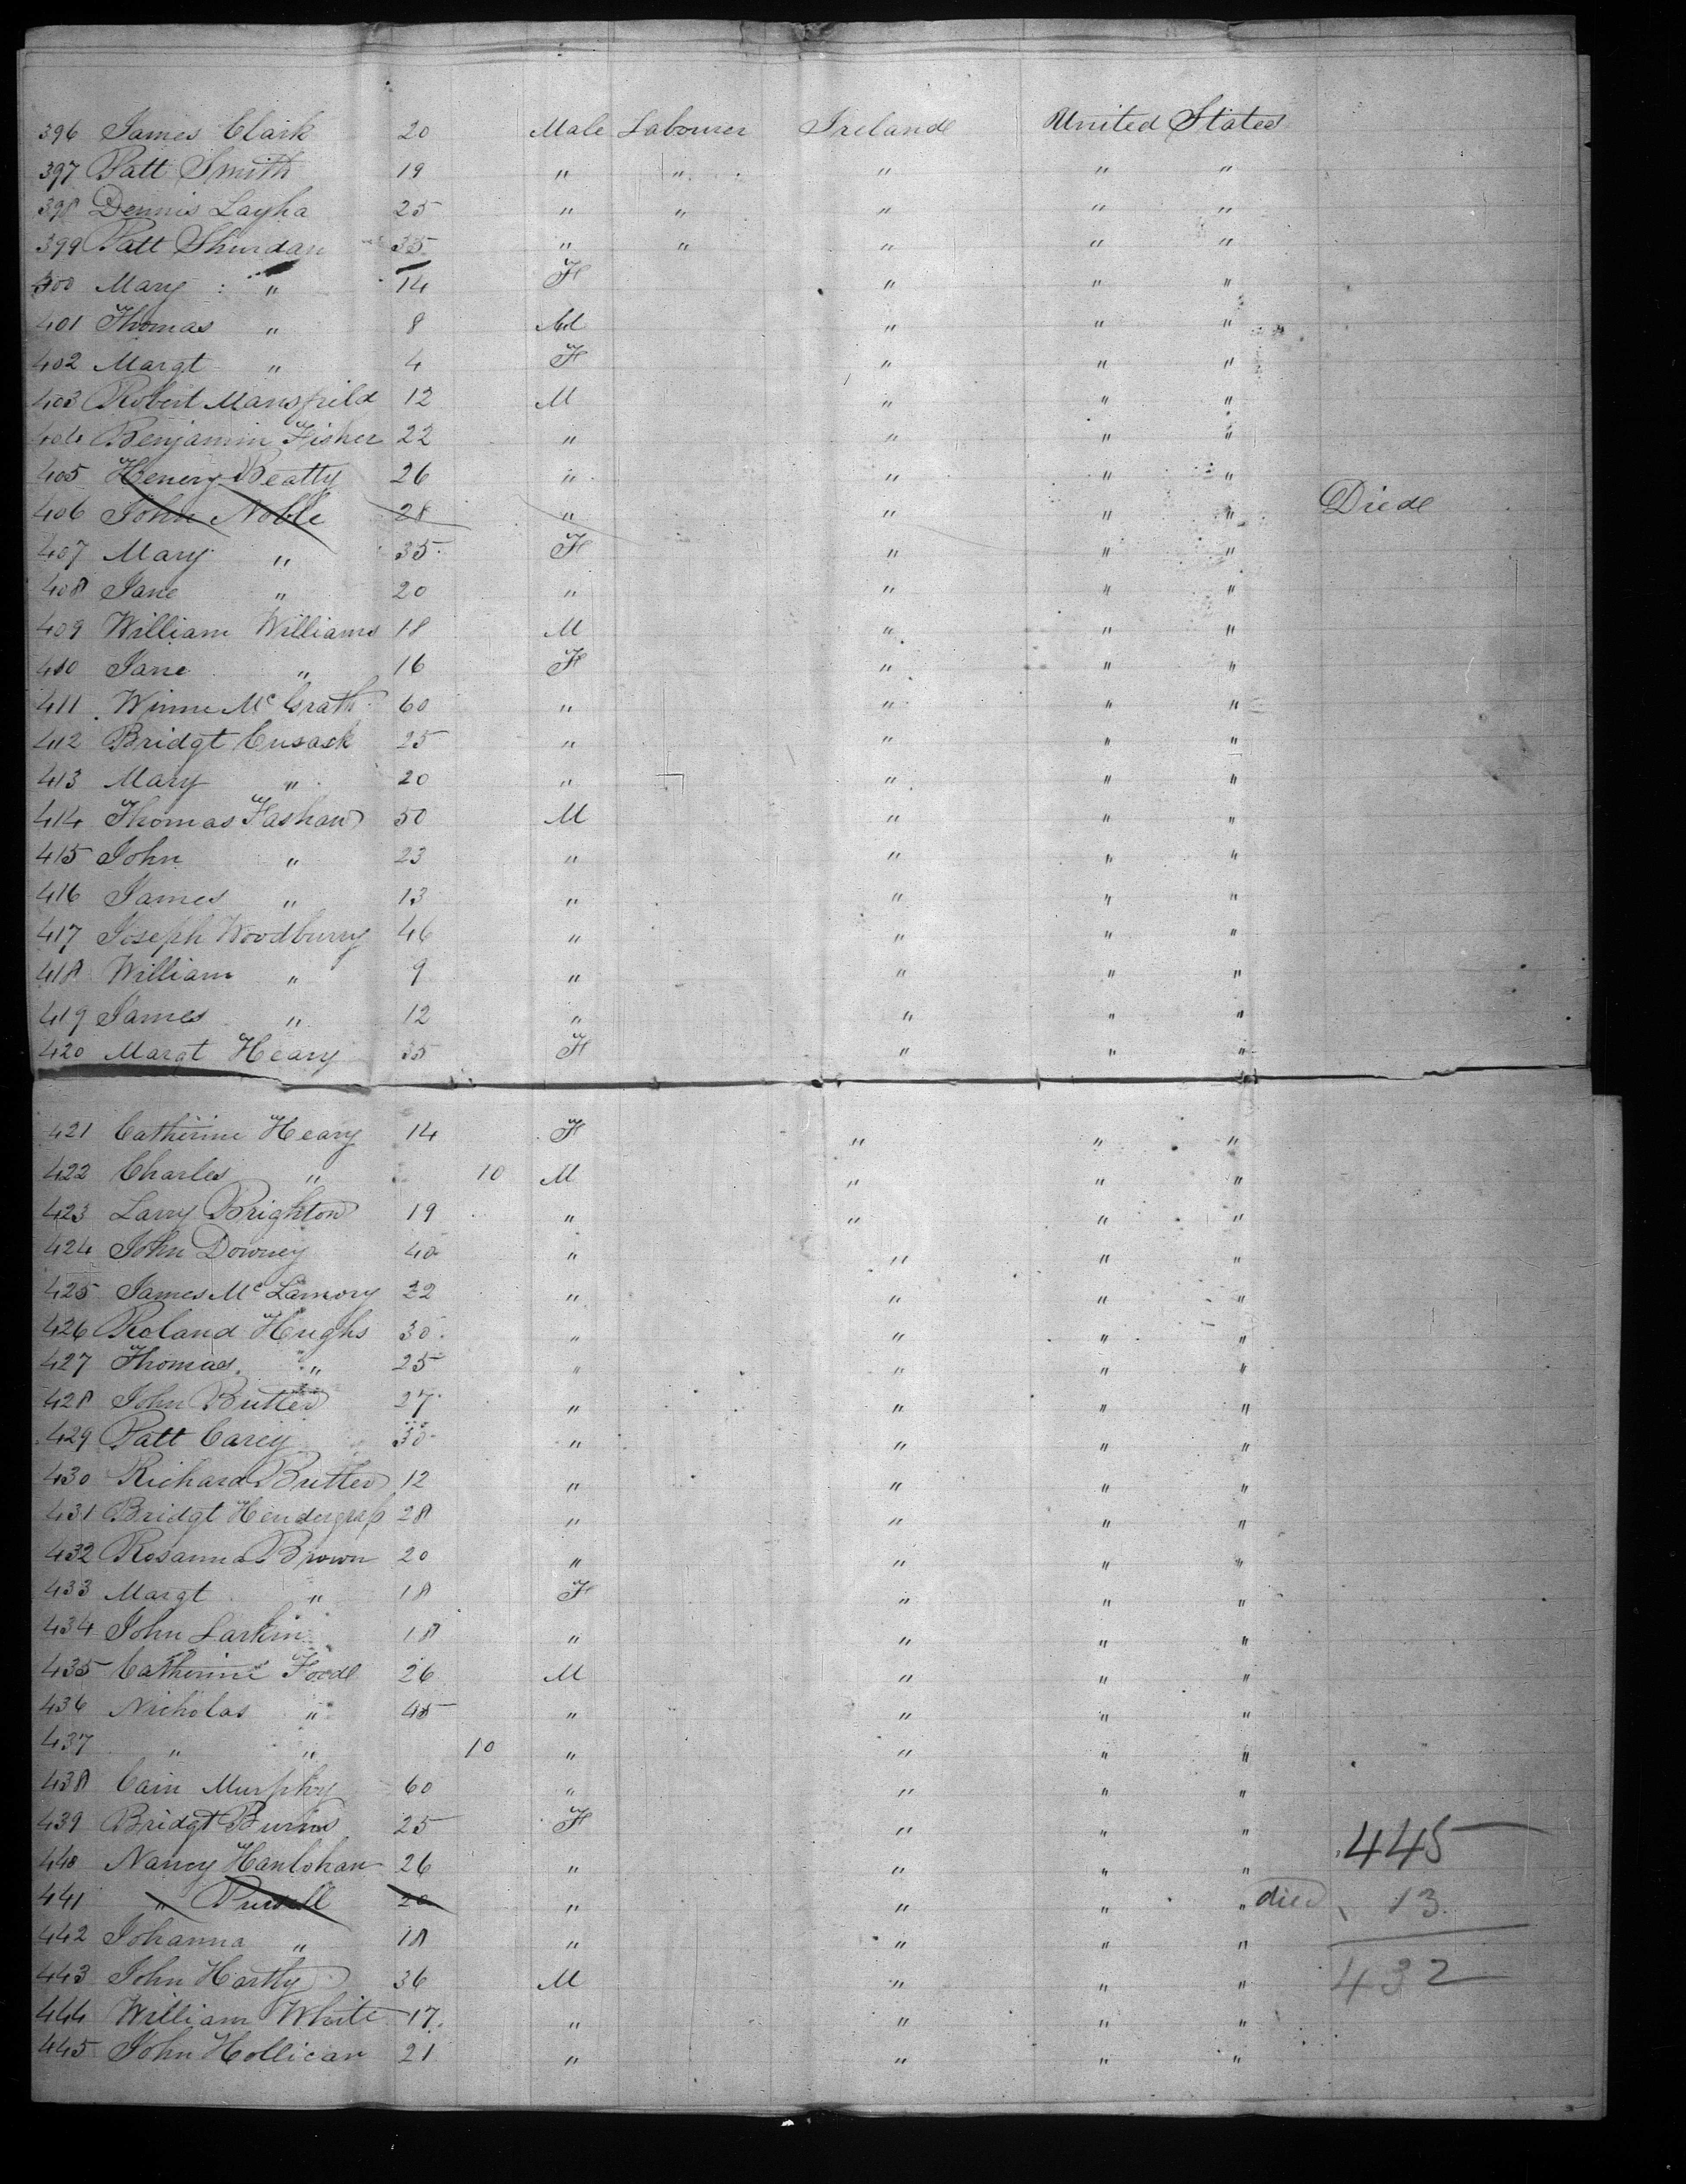 396 James Clark 20 Male Labourer Ireland United States
397 Patt Smith 19 " " " " "
398 Dennis Layha 25 " " " " "
399 Patt Shurdan 35 " " " " "
400 Mary " 14 F " " "
401 Thomas " 8 M " " "
402 Margt " 4 F " " "
403 Robert Mansfield 12 M " " "
404 Benjamin Fisher 22 " " " "
405 Henery Beatty 26 " " " "
406 John Noble 28 " " " " Died
407 Mary " 35 F " " "
408 Jane " 20 " " " "
409 William Williams 18 M " " "
410 Jane " 16 F " " "
411 Winne McGrath 60 " " " "
412 Bridgt Cusack 25 " " " "
413 Mary " 20 " " " "
414 Thomas Fashaw 50 M " " "
415 John " 23 " " " "
416 James " 13 " " " "
417 Joseph Woodburry 46 " " " "
418 William " 9 " " " "
419 James " 12 " " " "
420 Margt Heary 35 F " " "
421 Catherine Heary 14 F " " "
422 Charles " 10 M " " "
423 Larry Brighton 19 " " " "
424 John Downey 40 " " " "
425 James Mc Lamory 22 " " " "
426 Roland Hughs 30 " " " "
427 Thomas " 25 " " " "
428 John Butler 27 " " " "
429 Patt Carey 30 " " " "
430 Richard Butler 12 " " " "
431 Bridgt 28 " " " "
432 Rosanna Brown 20 " " " "
433 Margt " 18 F " " "
434 John Larkin 18 " " " "
435 Catherine Foode 26 M " " "
436 Nicholas " 45 " " " "
437 " " 10 " " " "
438 Cain Murphy 60 " " " "
439 Bridgt Burns 25 F " " " 445
440 Nancy Hanlohan 26 " " " "
441 " Pursell 20 " " " " died 13
442 Johanna " 18 " " " "
443 John Hartly 36 M " " " 432
444 William White 17 " " " "
445 John Hollican 21 " " " "